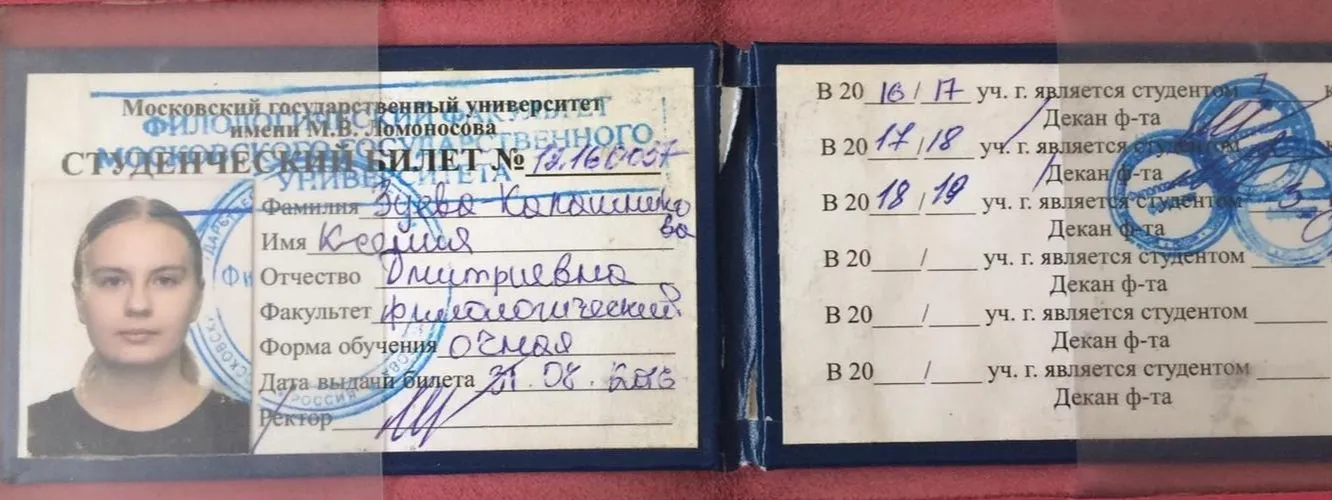 Московский государственный университет
имени М.В. Ломоносова
ФИЛОЛОГИЧЕСКИЙ ФАКУЛЬТЕТ
МОСКОВСКОГО ГОСУДАРСТВЕННОГО
УНИВЕРСИТЕТА
СТУДЕНЧЕСКИЙ БИЛЕТ № 12160057
Фамилия Зуева Калашнико
ва
Имя Ксения
Отчество Дмитриевна
Факультет филологический
Форма обучения очная
Дата выдачи билета 31.08.2016
Ректор
РОССИЯ
В 20 16 / 17 уч. г. является студентом 1
Декан ф-та
В 20 17 / 18 уч. г. является студентом
Декан ф-та
В 20 18 / 19 уч. г. является студентом 3
Декан ф-та
В 20___/___ уч. г. является студентом
Декан ф-та
В 20___/___ уч. г. является студентом
Декан ф-та
В 20___/___ уч. г. является студентом
Декан ф-та